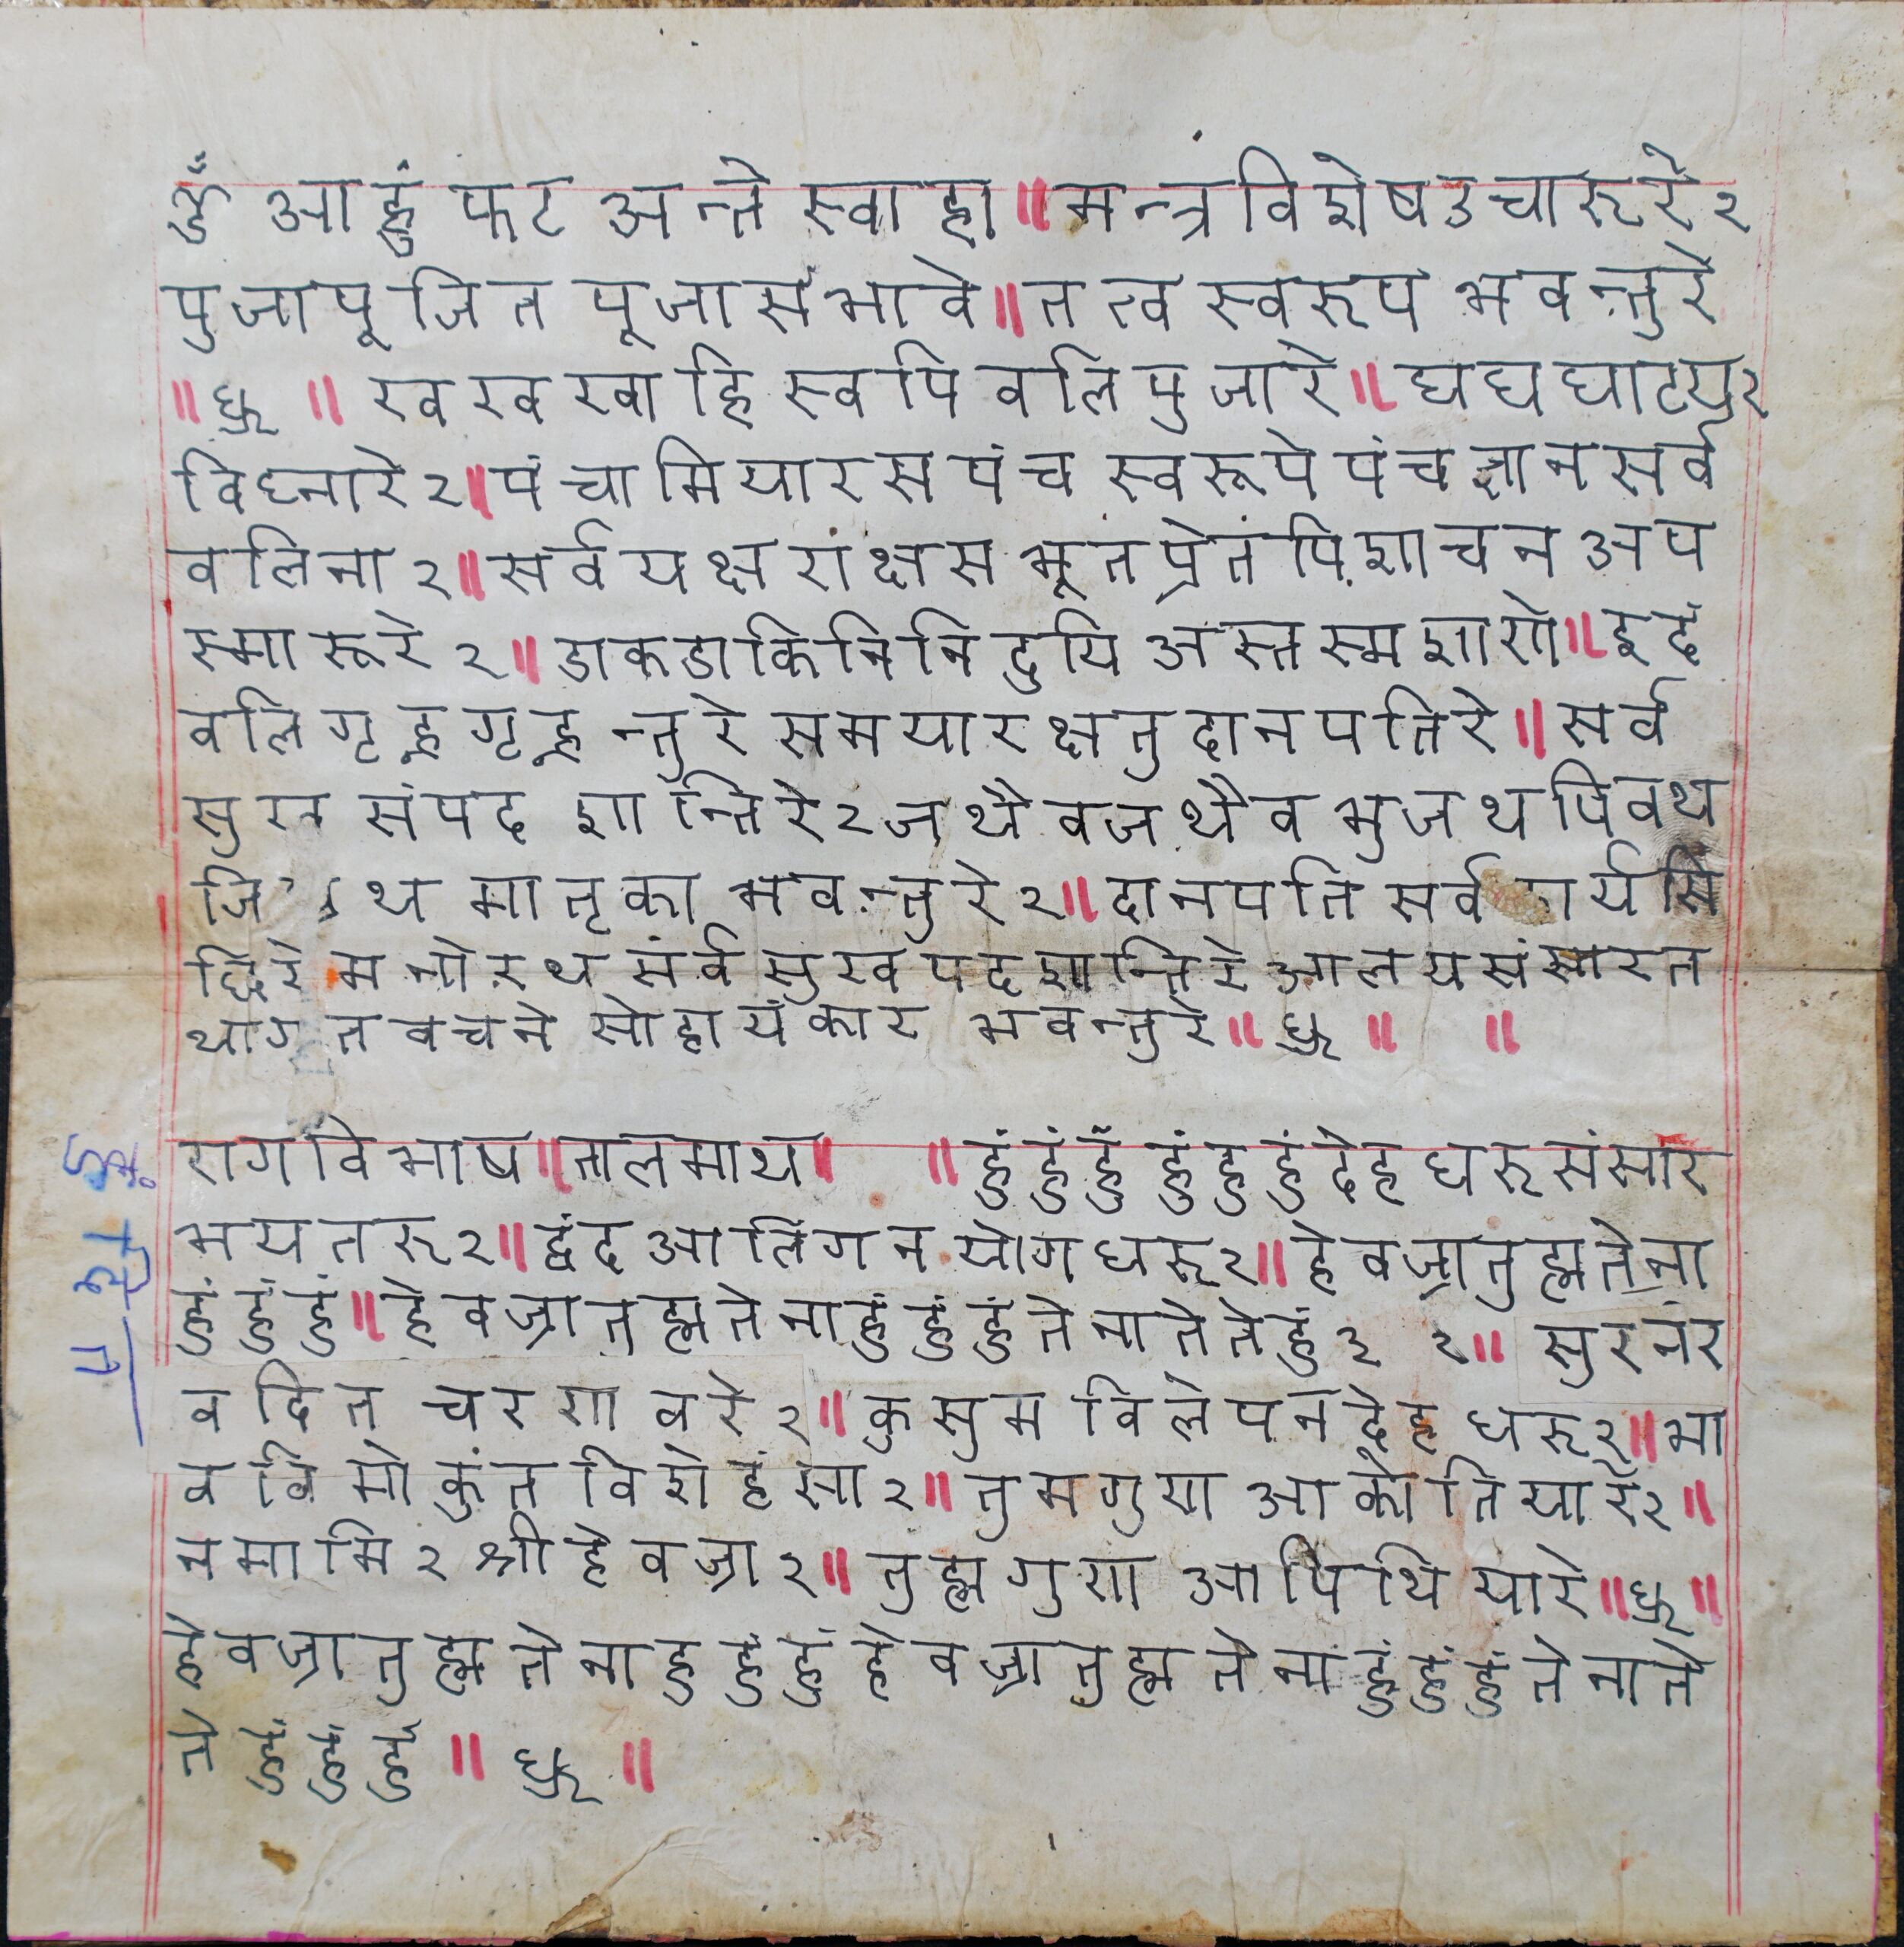 ॐ आहुं फट अन्ते स्वाहा॥मन्त्रविशेषउचारुरे२
पुजापूजित पूजासंभावे॥तत्वस्वरुपभवन्तुरे
॥ध्रु॥ खखखाहिखपिवलिपुजारे॥घघघाटय२
विघ्नारे२॥पंचामियारसपंचस्वरूपेपंचज्ञानसर्व
वलिना२॥सर्वयक्षरांक्षसभूतप्रेतंपिशाचनअप
स्मारूरे२॥डाकडाकिनिनिदुयिअस्तस्मशाणे॥इदं
वलिगृह्नगृह्नन्तुरेसमयारक्षतुदानपतिरे॥सर्व
सुख संपद शान्तिरे२जथैवजथैवभुजथपिवथ
जि थ मातृका भवन्तुरे२॥दानपतिसर्व र्यसि
द्धिरे मनोरथसर्वसुखपदशान्तिरेआलयसंसारत
थागतवचने सोहायंकार भवन्तुरे॥ध्रु॥ ॥
रागविभाष॥तालमाथ॥ ॥हुंहुंहुँहुंहुंहुंदेहधरुसंसार
भयतरु२॥द्वंदआलिंगनयोगधरू२॥हेवज्रातुह्मतेना
हुंहुंहुं॥हेवज्रातुह्मतेनाहुंहुंहुंतेनातेतेहुं२ २॥ सुरनर
वदित चरणवरे२॥कुसुमविलेपनदेहधरू२॥भा
वविमोकुंतविरोहंसार॥तुमगुणआकोतियारे२॥
नमामि२श्रीहेवज्रा२॥तुह्मगुणआपिथियारे॥ध्रु॥
हेवज्रातुह्मतेनाहुहुंहुंहेवज्रातुह्मतेनांहुंहुंहुंतेनाते
ते हुंहुंहुं॥ध्रु॥